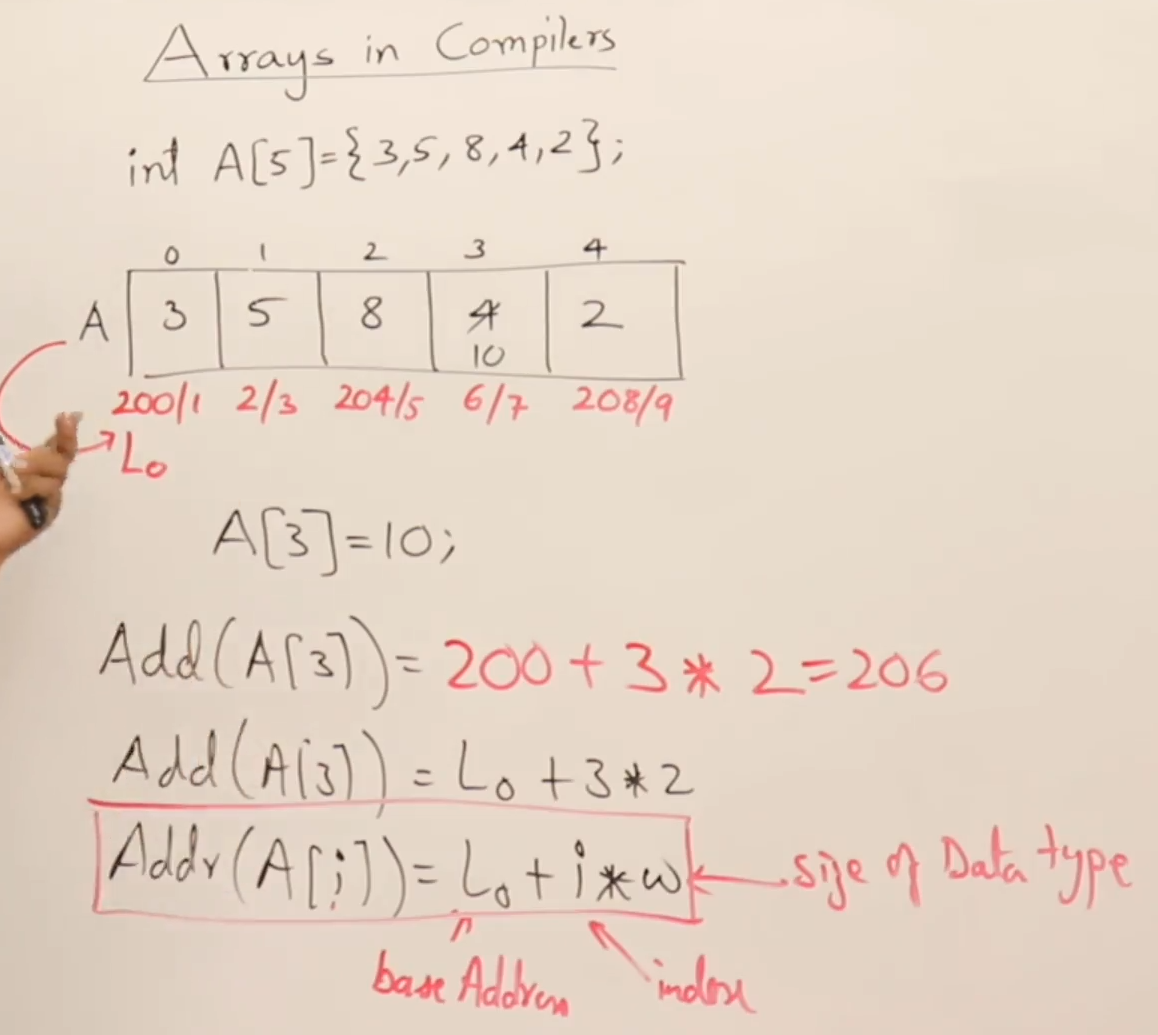 Arrays in Compilers
int A[5]={3,5,8,4,2};
0 1 2 3 4
A 3 5 8 4 2
10
200/1 2/3 204/5 6/7 208/9
Lo
A[3]=10;
Add(A[3])=200+3*2=206
Add(A[3])=Lo+3*2
Addr(A[i])=Lo+i*w size of Data type
base Address index